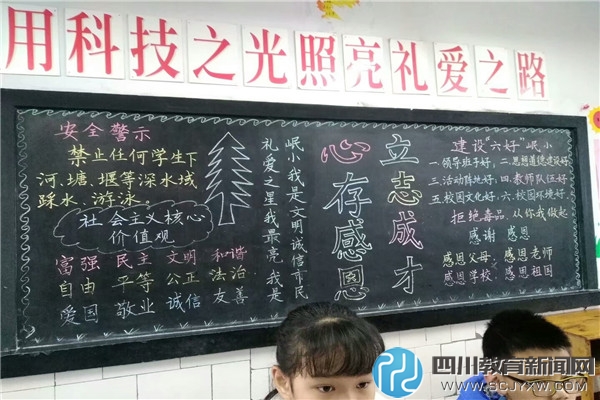 用科技之光照亮礼爱之路
安全警示
禁止任何学生下
河、塘、堰等深水域
踩水、游泳。
社会主义核心
价值观
富强 民主 文明 和谐
自由 平等 公正 法治
爱国 敬业 诚信 友善
岷小我是文明诚信市民
礼爱之星我最亮我是
心存感恩
立志成才
建设"六好"岷小
一.领导班子好,二.思想道德建设好
三.活动阵地好,四.教师队伍好
五.校园文化好,六.校园环境好
拒绝毒品,从你我做起
感谢 感恩
感恩父母,感恩老师
感恩学校,感恩祖国
四川教育新闻网
WWW.SCJYXW.COM